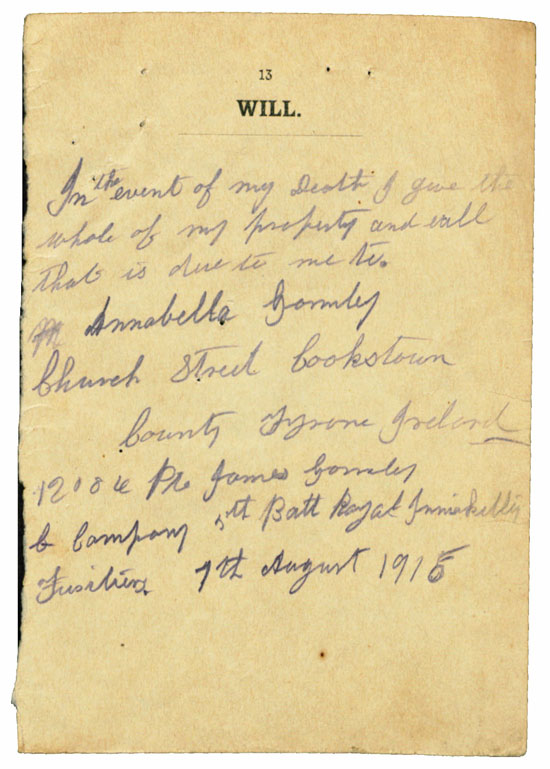 13
WILL.
In the event of my Death I give the
whole of my property and all
that is due to me to.
Annabella Gormley
Church Street Cookstown
County Tyrone Ireland
Pte James Gormley
Company th Batt Royal Inniskillin
Fusiliers 7th August 1915